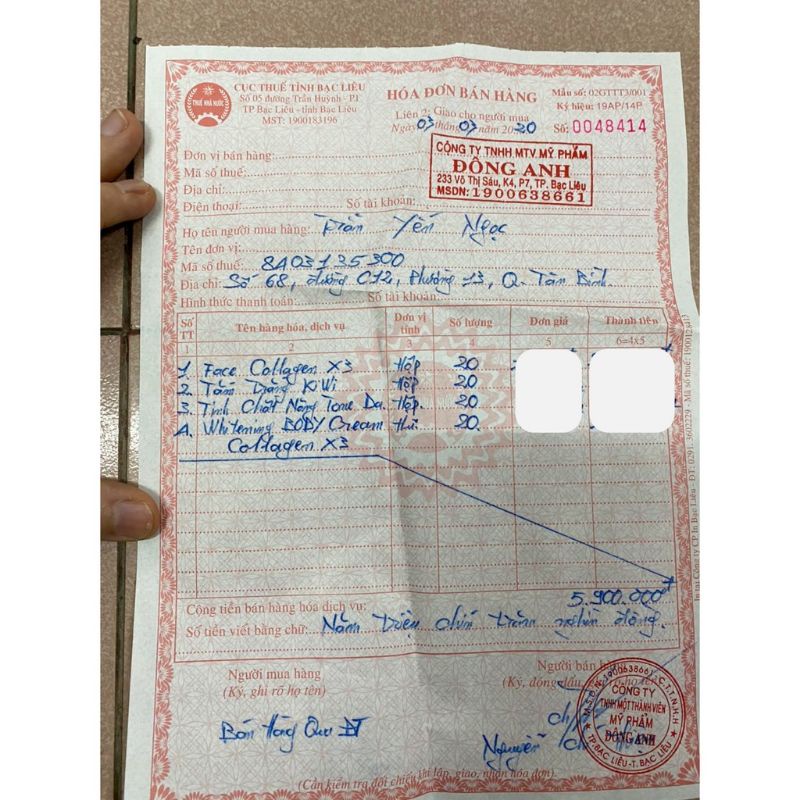 CỤC THUẾ TỈNH BẠC LIÊU
Số 05 đường Trần Huỳnh - P1
TP Bạc Liêu - tỉnh Bạc Liêu
MST: 1900183196
THUẾ NHÀ NƯỚC
HÓA ĐƠN BÁN HÀNG
Liên 2: Giao cho người mua
Ngày 03 tháng 03 năm 2020
Mẫu số: 02GTTT3/001
Ký hiệu: 19AP/14P
Số: 0048414
CÔNG TY TNHH MTV MỸ PHẨM
ĐÔNG ANH
233 Võ Thị Sáu, K4, P7, TP. Bạc Liêu
MSDN: 1900638661
Đơn vị bán hàng:
Mã số thuế:
Địa chỉ:
Điện thoại: Số tài khoản:
Họ tên người mua hàng: Trần Yến Ngọc
Tên đơn vị:
Mã số thuế: 8A03135300
Địa chỉ: Số 68, đường C12, Phường 13, Q. Tân Bình
Hình thức thanh toán: Số tài khoản:
Số TT Tên hàng hóa, dịch vụ Đơn vị tính Số lượng Đơn giá Thành tiền
1 2 3 4 5 6=4x5
1. Face Collagen X3 Hộp 20
2. Tắm Trắng KiWi Hộp 20
3. Tinh Chất Nâng Tone Da. Hộp. 20
4. Whitening BODY Cream 20.
Collagen X3
Cộng tiền bán hàng hóa dịch vụ: 5.900.000
Số tiền viết bằng chữ: Năm triệu chín trăm nghìn đồng.
Người mua hàng
(Ký, ghi rõ họ tên)
Bán Hàng Qua ĐT
Người bán
Nguyễn
M.S.D.N:1900638661-C.T.T.N.H.H
CÔNG TY
TNHH MỘT THÀNH VIÊN
MỸ PHẨM
ĐÔNG ANH
TP.BẠC LIÊU-T.BẠC LIÊU
(Cần kiểm tra đối chiếu khi lập, giao, nhận hóa đơn)
In tại Công ty CP In Bạc Liêu - ĐT: 0291. 3602229 - Mã số thuế: